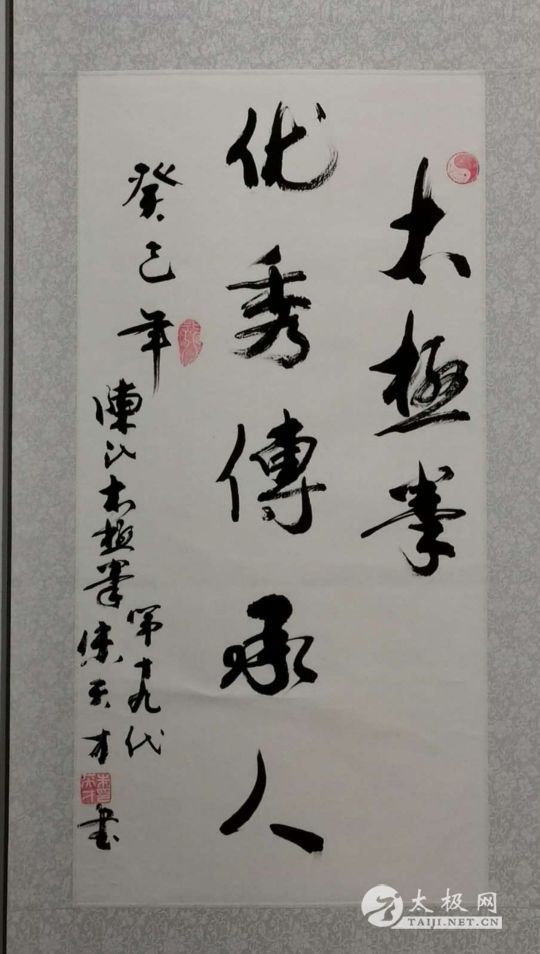 太極拳
优秀傳承人
癸巳年
陳氏太極拳
第十九代
朱天才書
太极网
TAIJI.NET.CN